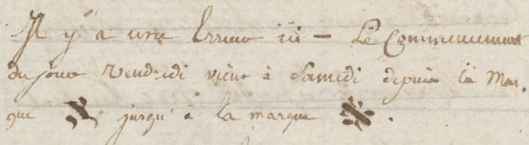 Il y a une Erreur ici – Le Commencement
du jour Vendredi vient à Samedi depuis la Mar.
que jusqu'à la marque